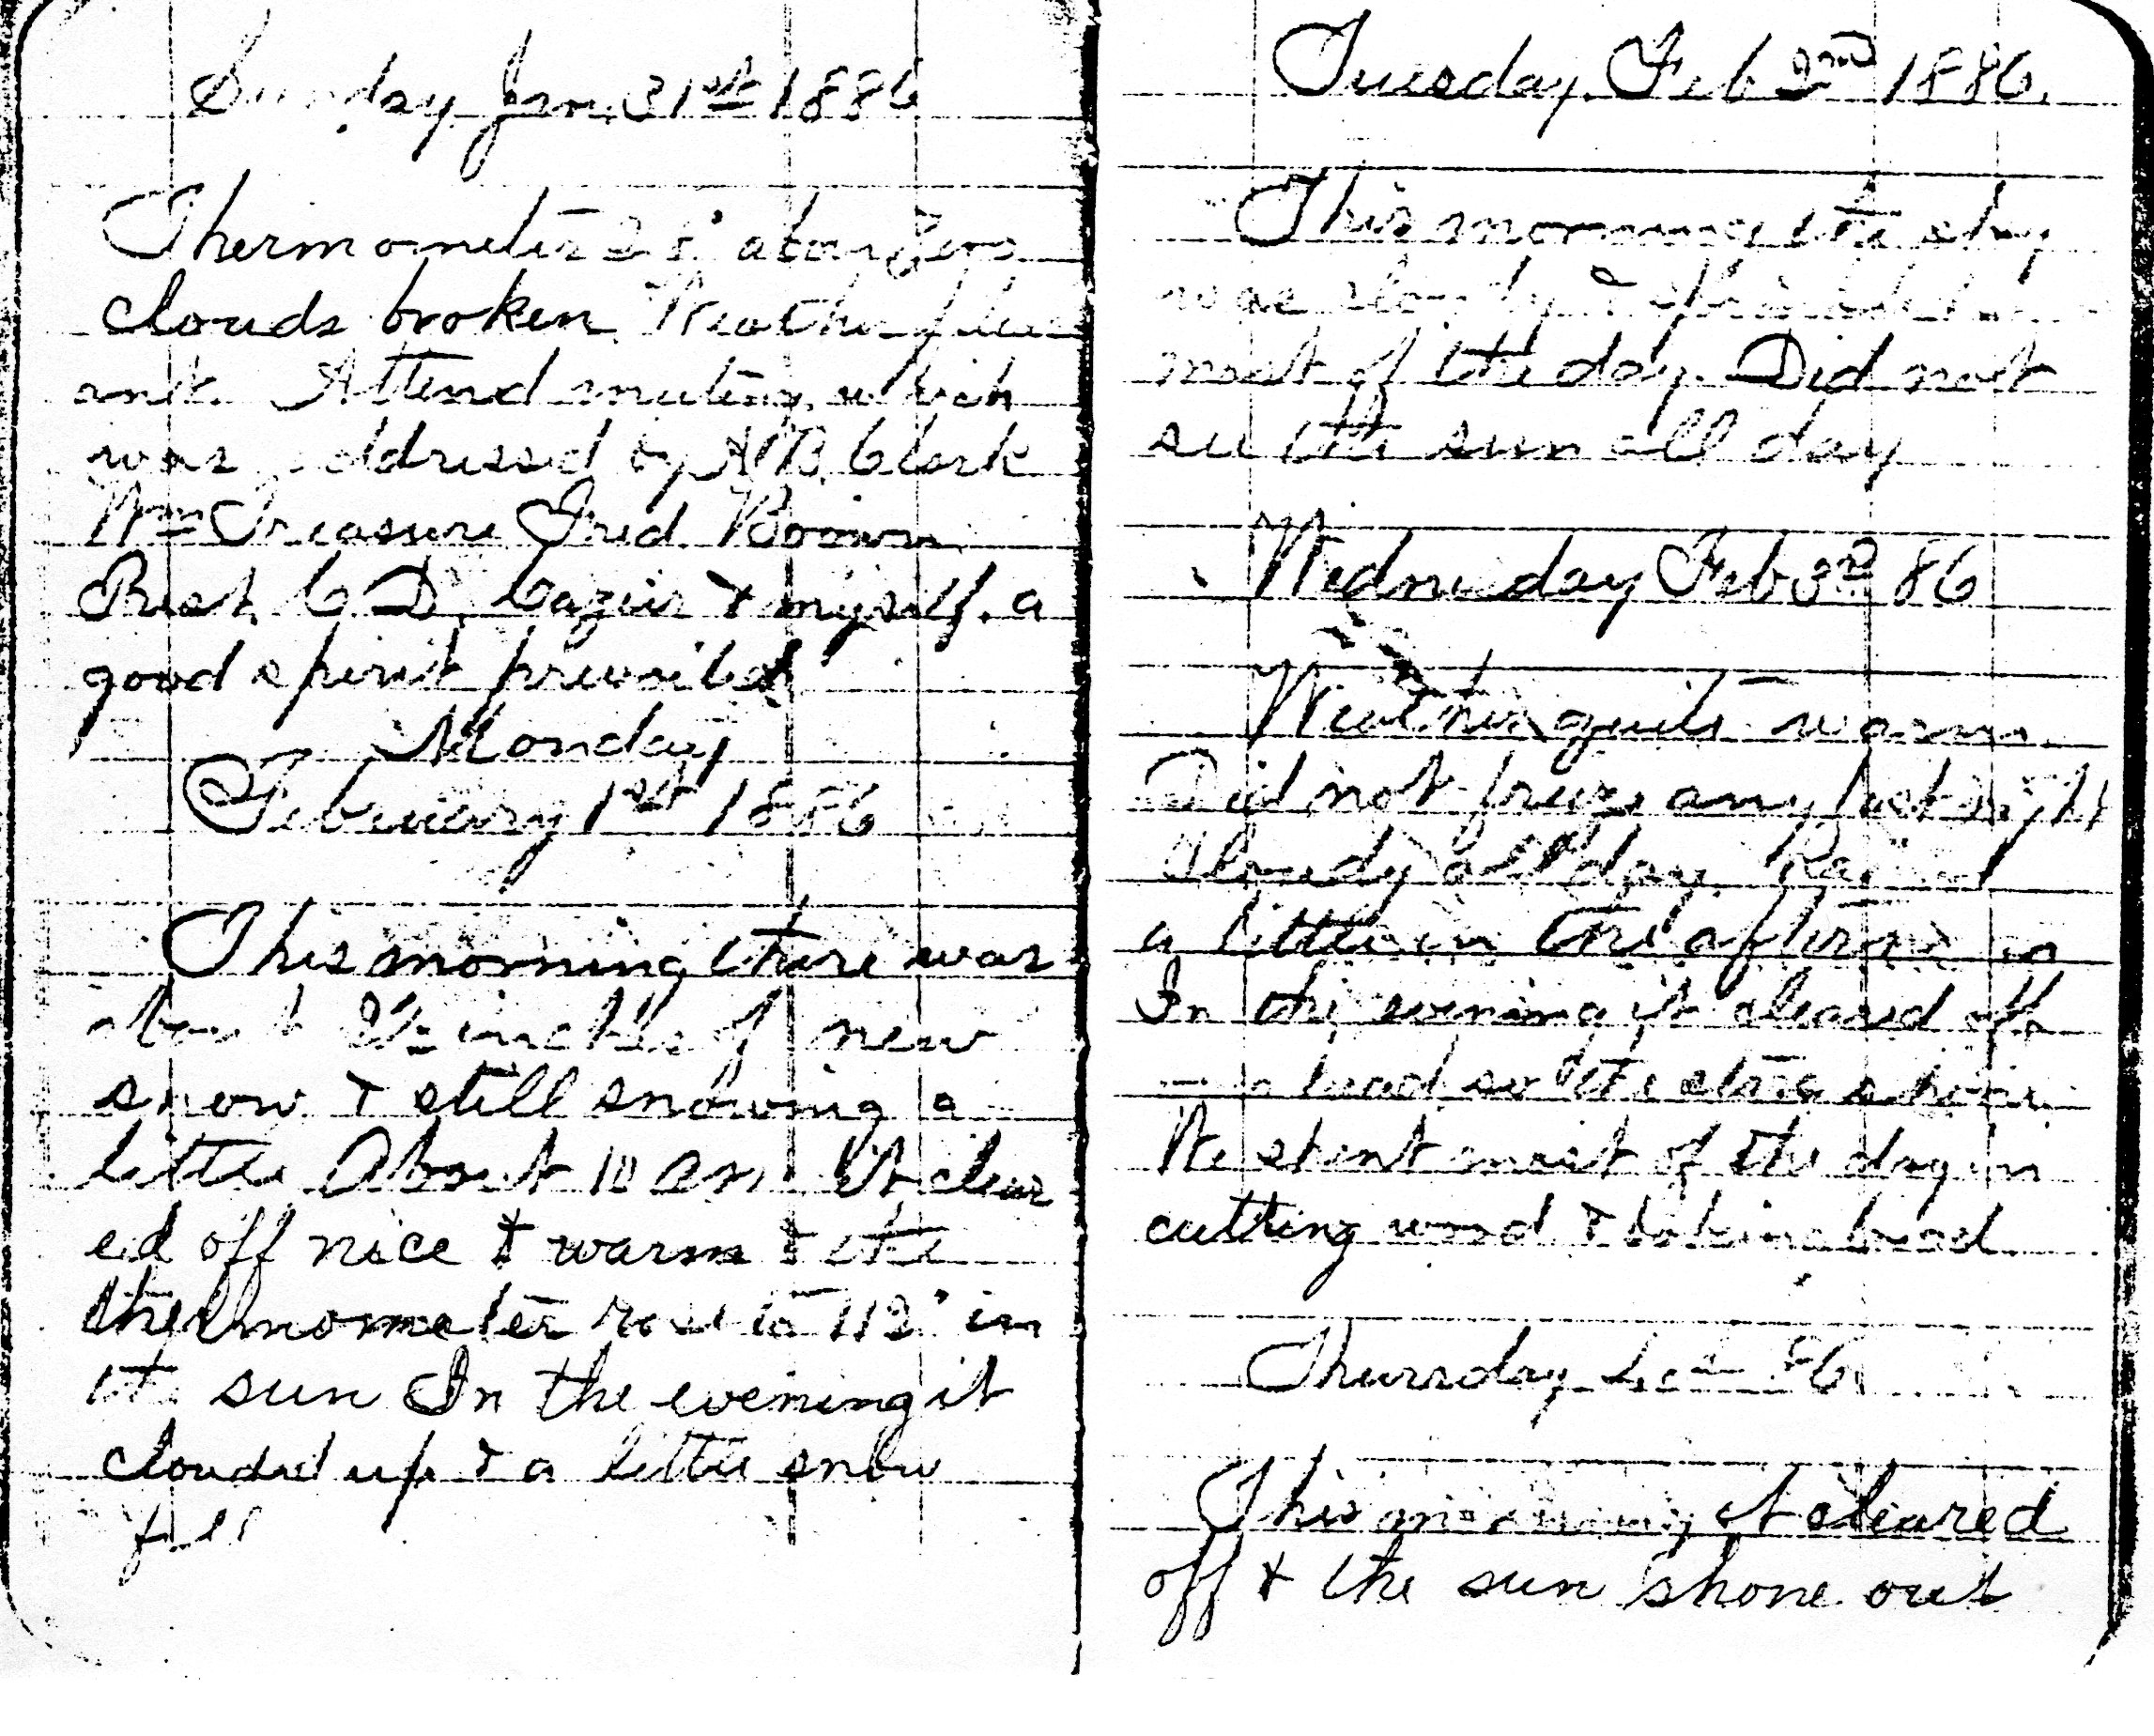 Sunday Jan. 31st 1886
Thermometer above Zero
clouds broken. Weather pleas
ant. Attend meeting, which
was addressed by Clark
Wm Treasure Fred.
Prest. C D. Cazier & myself. a
good spirit prevailed
Monday
February 1st 1886
This morning there was
about 2½ inches of new
snow & still snowing a
little About 10 am. It clear
ed off nice & warm & the
thermometer rose to 112° in
the sun In the evening it
clouded up & a little snow
fell
Tuesday. Feb 2nd 1886.
This morning the sky
was cloudy &
most of the day. Did not
see the sun all day
Wednesday Feb 3rd 86
Weather quite warm.
Did not freeze any last night
Cloudy all day. Rained
a little in the afternoon
In the evening it cleared off
head so the stars
We spent most of the day in
cutting wood & baking bread
Thursday 86
This morning it cleared
off & the sun shone out